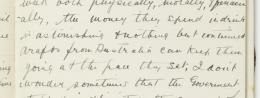 weak both physically, morally, & financi
ally, the money they spend in drink
is astonishing & nothing but continued
drafts from Australia can keep them
going at the pace they set, I don't
wonder sometimes that the Government